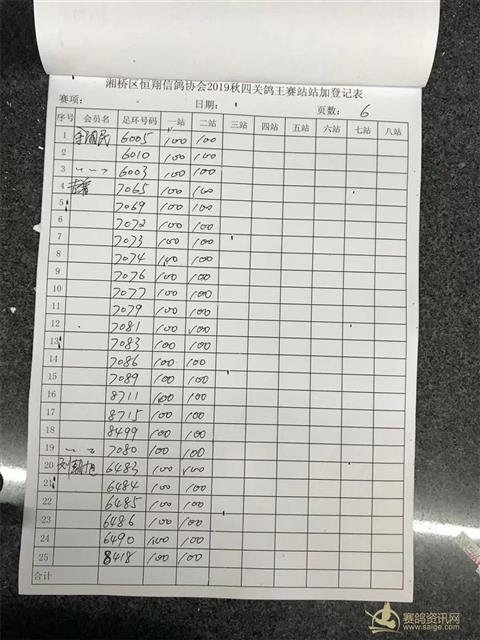 湘桥区恒翔信鸽协会2019秋四关鸽王赛站站加登记表
赛项: 日期: 页数: 6
序号 会员名 足环号码 一站 二站 三站 四站 五站 六站 七站 八站
1 6005 100 100
2 6010 100 100
3 6003 100 100
4 7065 100 100
5 7069 100 100
6 7072 100 100
7 7073 100 100
8 7074 100 100
9 7076 100 100
10 7077 100 100
11 7079 100 100
12 7081 100 100
13 7083 100 100
14 7086 100 100
15 7089 100 100
16 8711 100 100
17 8715 100 100
18 8499 100 100
19 7080 100 100
20 6483 100 100
21 6484 100 100
22 6485 100 100
23 6486 100 100
24 6490 100 100
25 8418 100 100
合计
赛鸽资讯网
www.saige.com